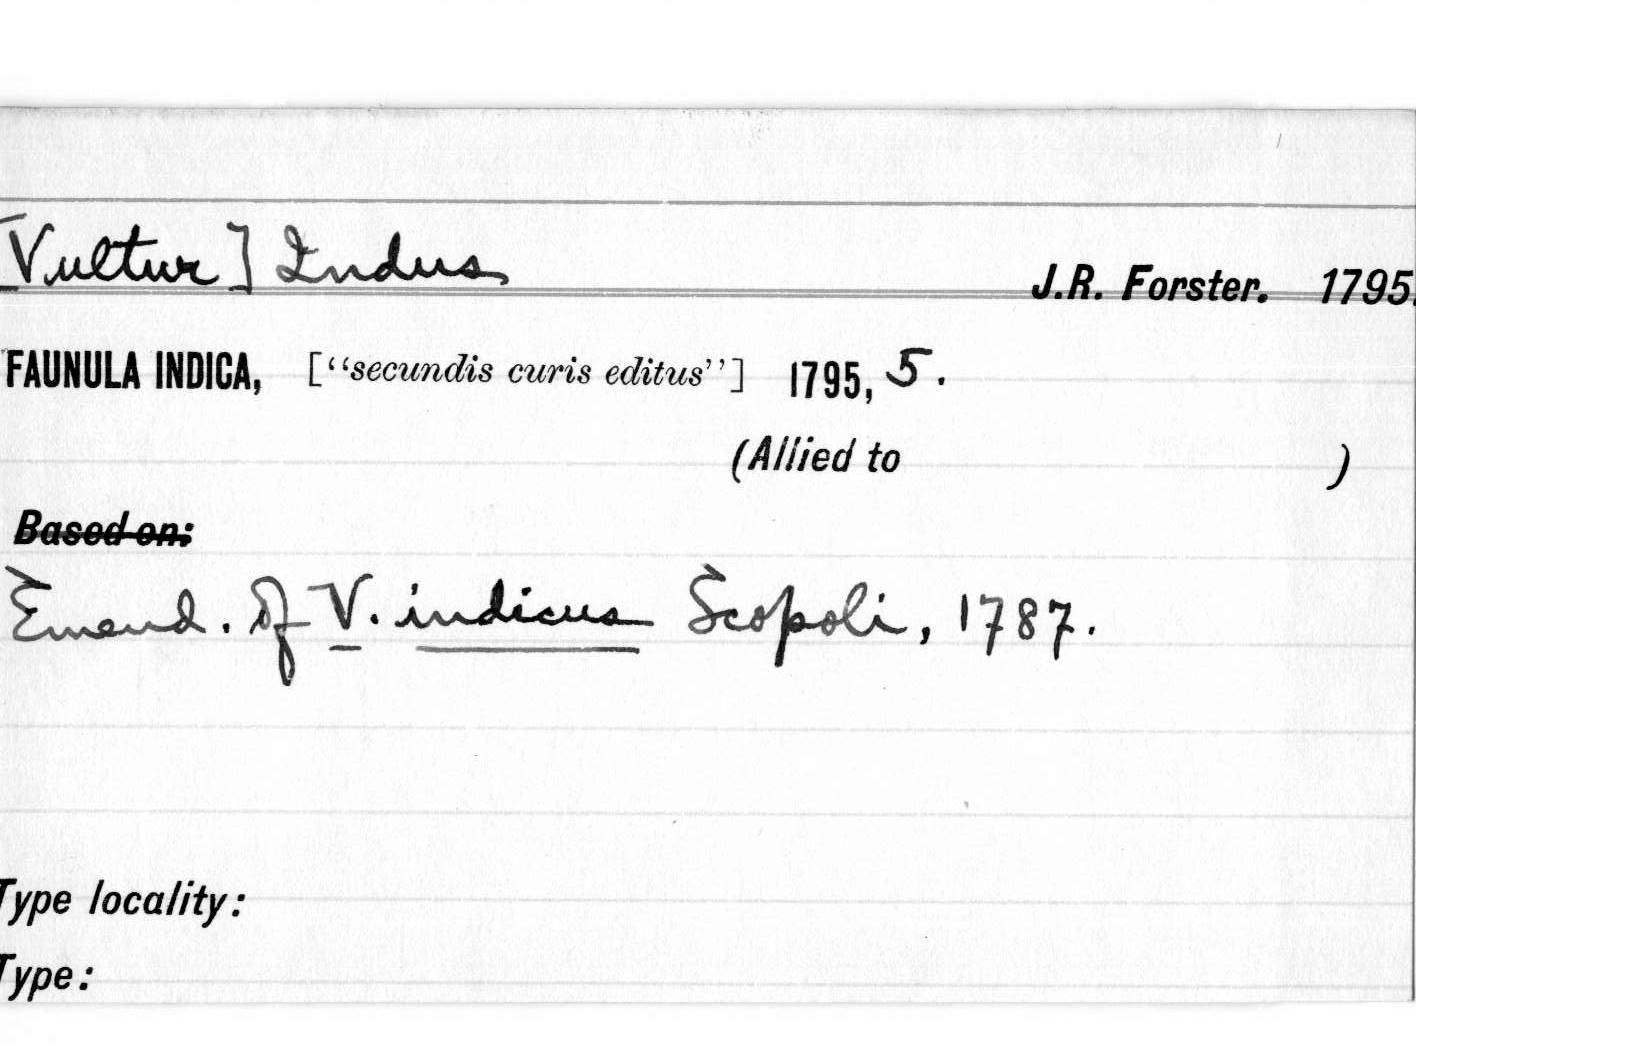 [Vultur] Indus
J.R. Forster. 1795.
FAUNULA INDICA, ["secundis curis editus"] 1795, 5.
(Allied to )
Based on:
Emend. of V. indicus Scopoli, 1787.
Type locality:
Type: